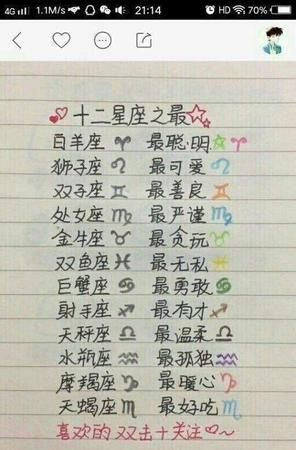 4G 1.1M/s 21:14 HD 70%
十二星座之最
白羊座 ♈ 最聪明 ♈
狮子座 ♌ 最可爱 ♌
双子座 ♊ 最善良 ♊
处女座 ♍ 最严谨 ♍
金牛座 ♉ 最贪玩 ♉
双鱼座 ♓ 最无私 ♓
巨蟹座 ♋ 最勇敢 ♋
射手座 ♐ 最有才 ♐
天秤座 ♎ 最温柔 ♎
水瓶座 ♒ 最孤独 ♒
摩羯座 ♑ 最暖心 ♑
天蝎座 ♏ 最好吃 ♏
喜欢的双击+关注